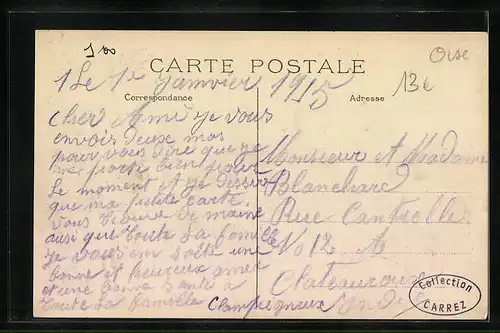 1 00
Oise
13€
CARTE POSTALE
Correspondance
Adresse
Le 1er Janvier 1915
Cher Ami je vous
envois deux mos
pour vous dire que je
me porte bien
le moment et je dessire
que ma petite carte
vous trouve de maime
ausi que toute la famille
je vous en solte une
bonne et heureux année
et une bonne santé a
toute la famille
Monsieur et Madame
Blanchard
Rue Cantrelle
No 12 A
Chateauroux
Indre
Collection
CARREZ